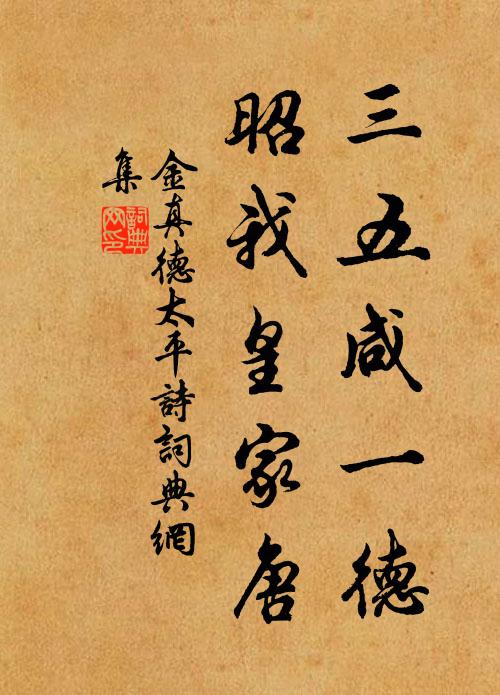 三五咸一德
昭我皇家唐
金真德太平詩詞典網
集
詞典
网印